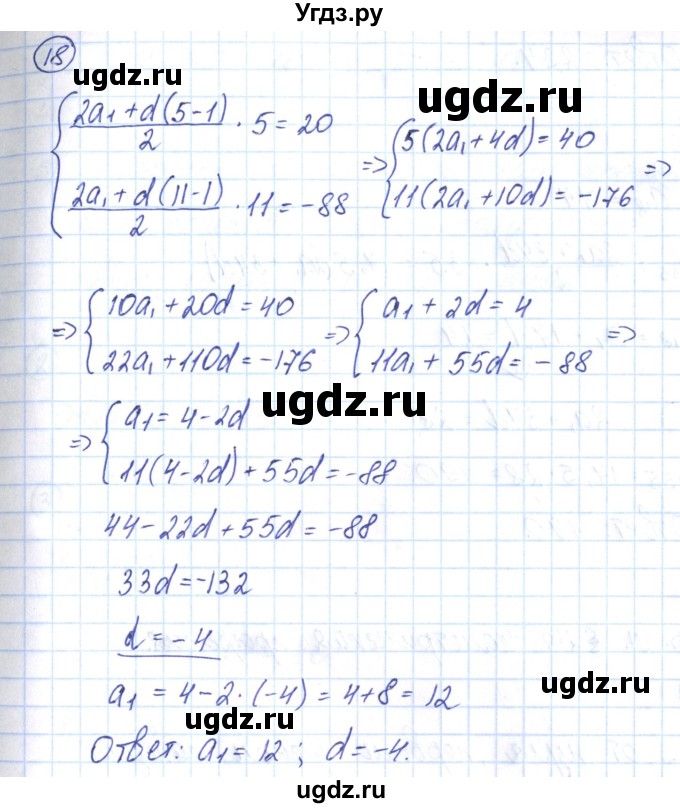 Угдз.ру
18
ugdz.ru ugdz.ru
{ (2a₁+d(5-1))/2 · 5 = 20
(2a₁+d(11-1))/2 · 11 = -88
=> { 5(2a₁+4d)=40
11(2a₁+10d)=-176 =>
ugdz.ru ugdz.ru
=> { 10a₁+20d=40
22a₁+110d=-176
=> { a₁+2d=4
11a₁+55d=-88 =>
ugdz.ru
=> { a₁=4-2d
11(4-2d)+55d=-88
ugdz.ru ugdz.ru
44-22d+55d=-88
33d=-132
d=-4
ugdz.ru ugdz.ru
a₁=4-2·(-4)=4+8=12
ugdz.ru
Ответ: a₁=12; d=-4.
ugdz.ru